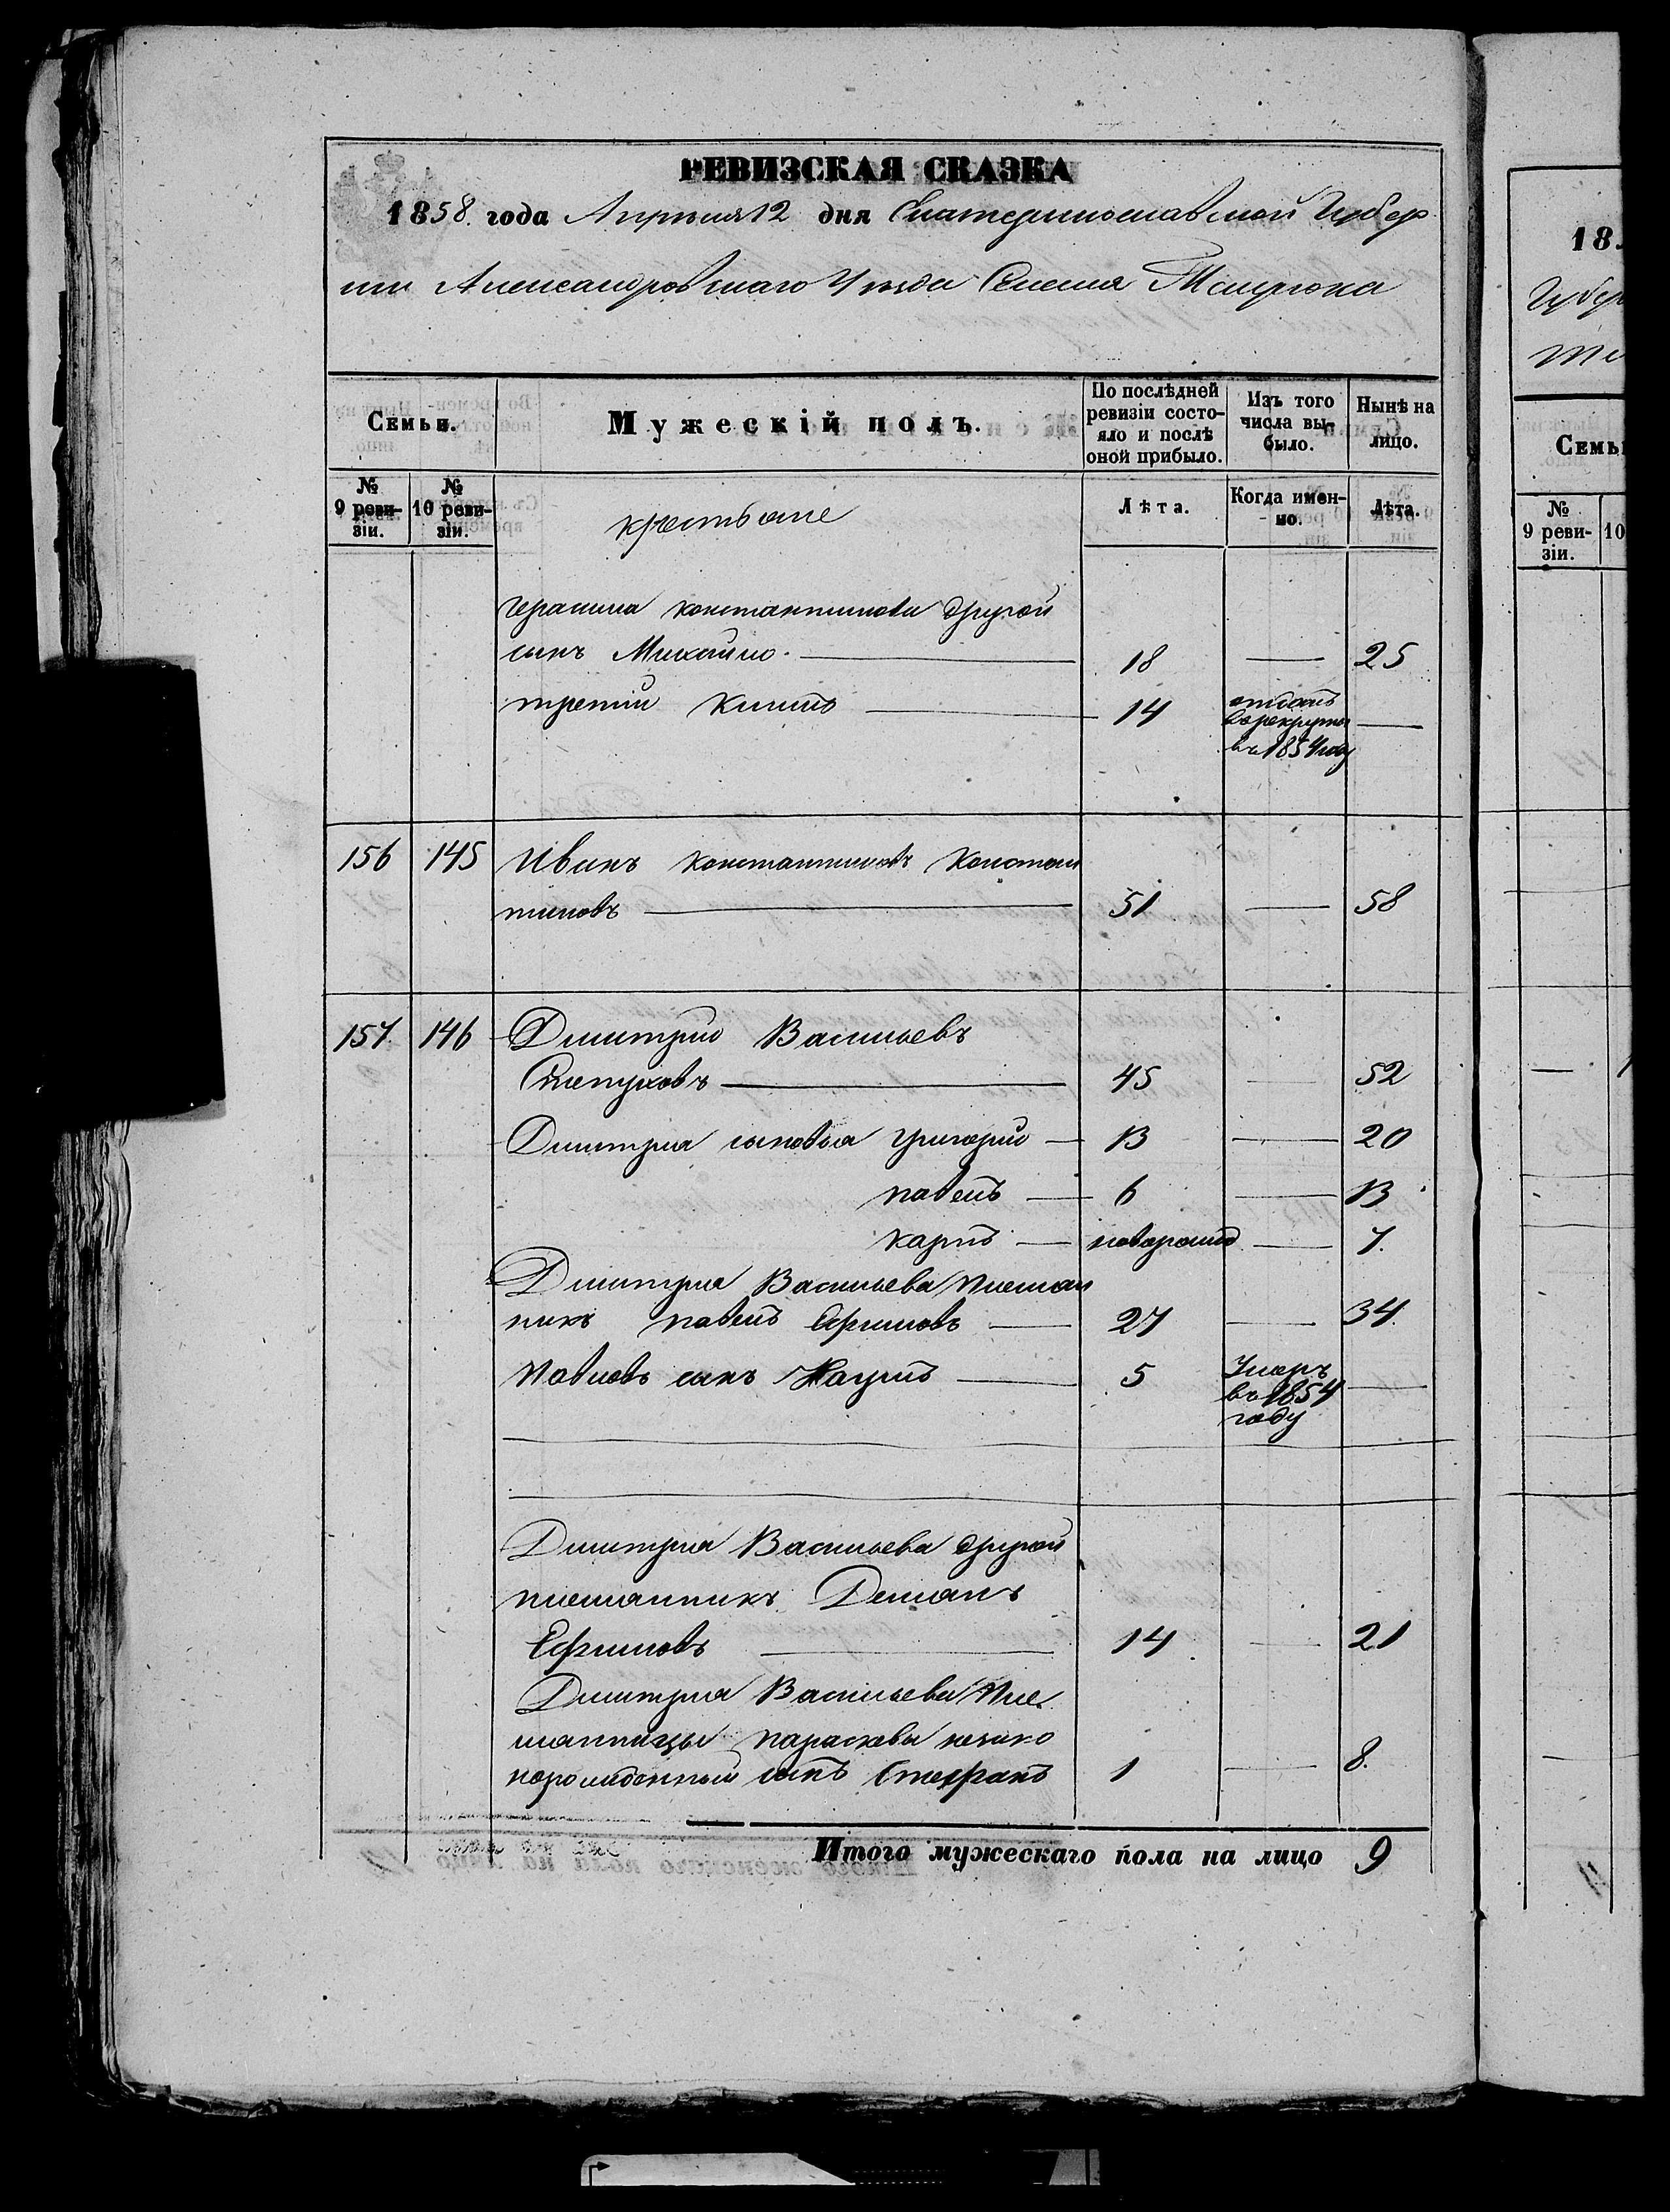 РЕВИЗСКАЯ СКАЗКА
1858. года Апрѣля 12 дня Екатеринославской Губер
ніи Александровскаго Уѣзда Селенія Темрюка
Семьи.
Мужескій полъ.
По послѣдней ревизіи состо-яло и послѣ оной прибыло.
Изъ того числа вы-было.
Нынѣ на лицо.
№ 9 реви-зіи.
№ 10 реви-зіи.
крестьяне
Лѣта.
Когда имен-но.
Лѣта.
Герасима Константинова другой
сынъ Михайло. 18 — 25
третій 14 отданъ в рекруты в 1854 году —
156 145 Иванъ Константиновъ Констан
тиновъ 51 — 58
157. 146 Дмитрій Васильевъ
45 — 52
Дмитрия сыновья Григорій — 13 — 20
Павелъ — 6 — 13
Карпъ — новорожд — 7.
Дмитрия Васильева племян
никъ Павелъ Ефимовъ — 27 — 34.
Павловъ сынъ Наумъ — 5 Умеръ въ 1854 году —
Дмитрия Васильева другой
племянникъ Демьянъ
Ефимовъ — 14 — 21
Дмитрия Васильева пле
мянницы Параскевы незако
норожденный сынъ Стефанъ 1 — 8.
Итого мужескаго пола на лицо 9
18
Губер
Семьи
№ 9 реви-зіи.
10